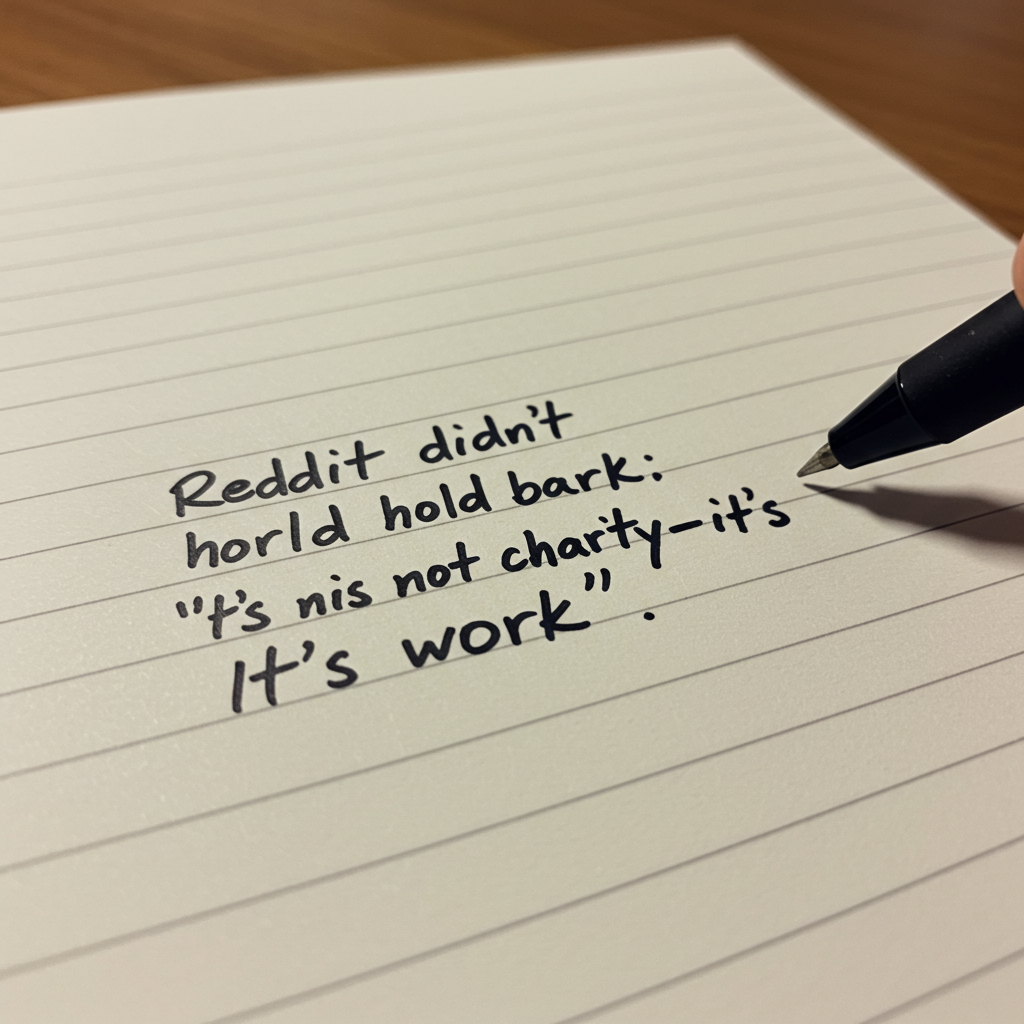 Reddit didn't
horld hold bark:
"t's nis not charity—it's
It's work".